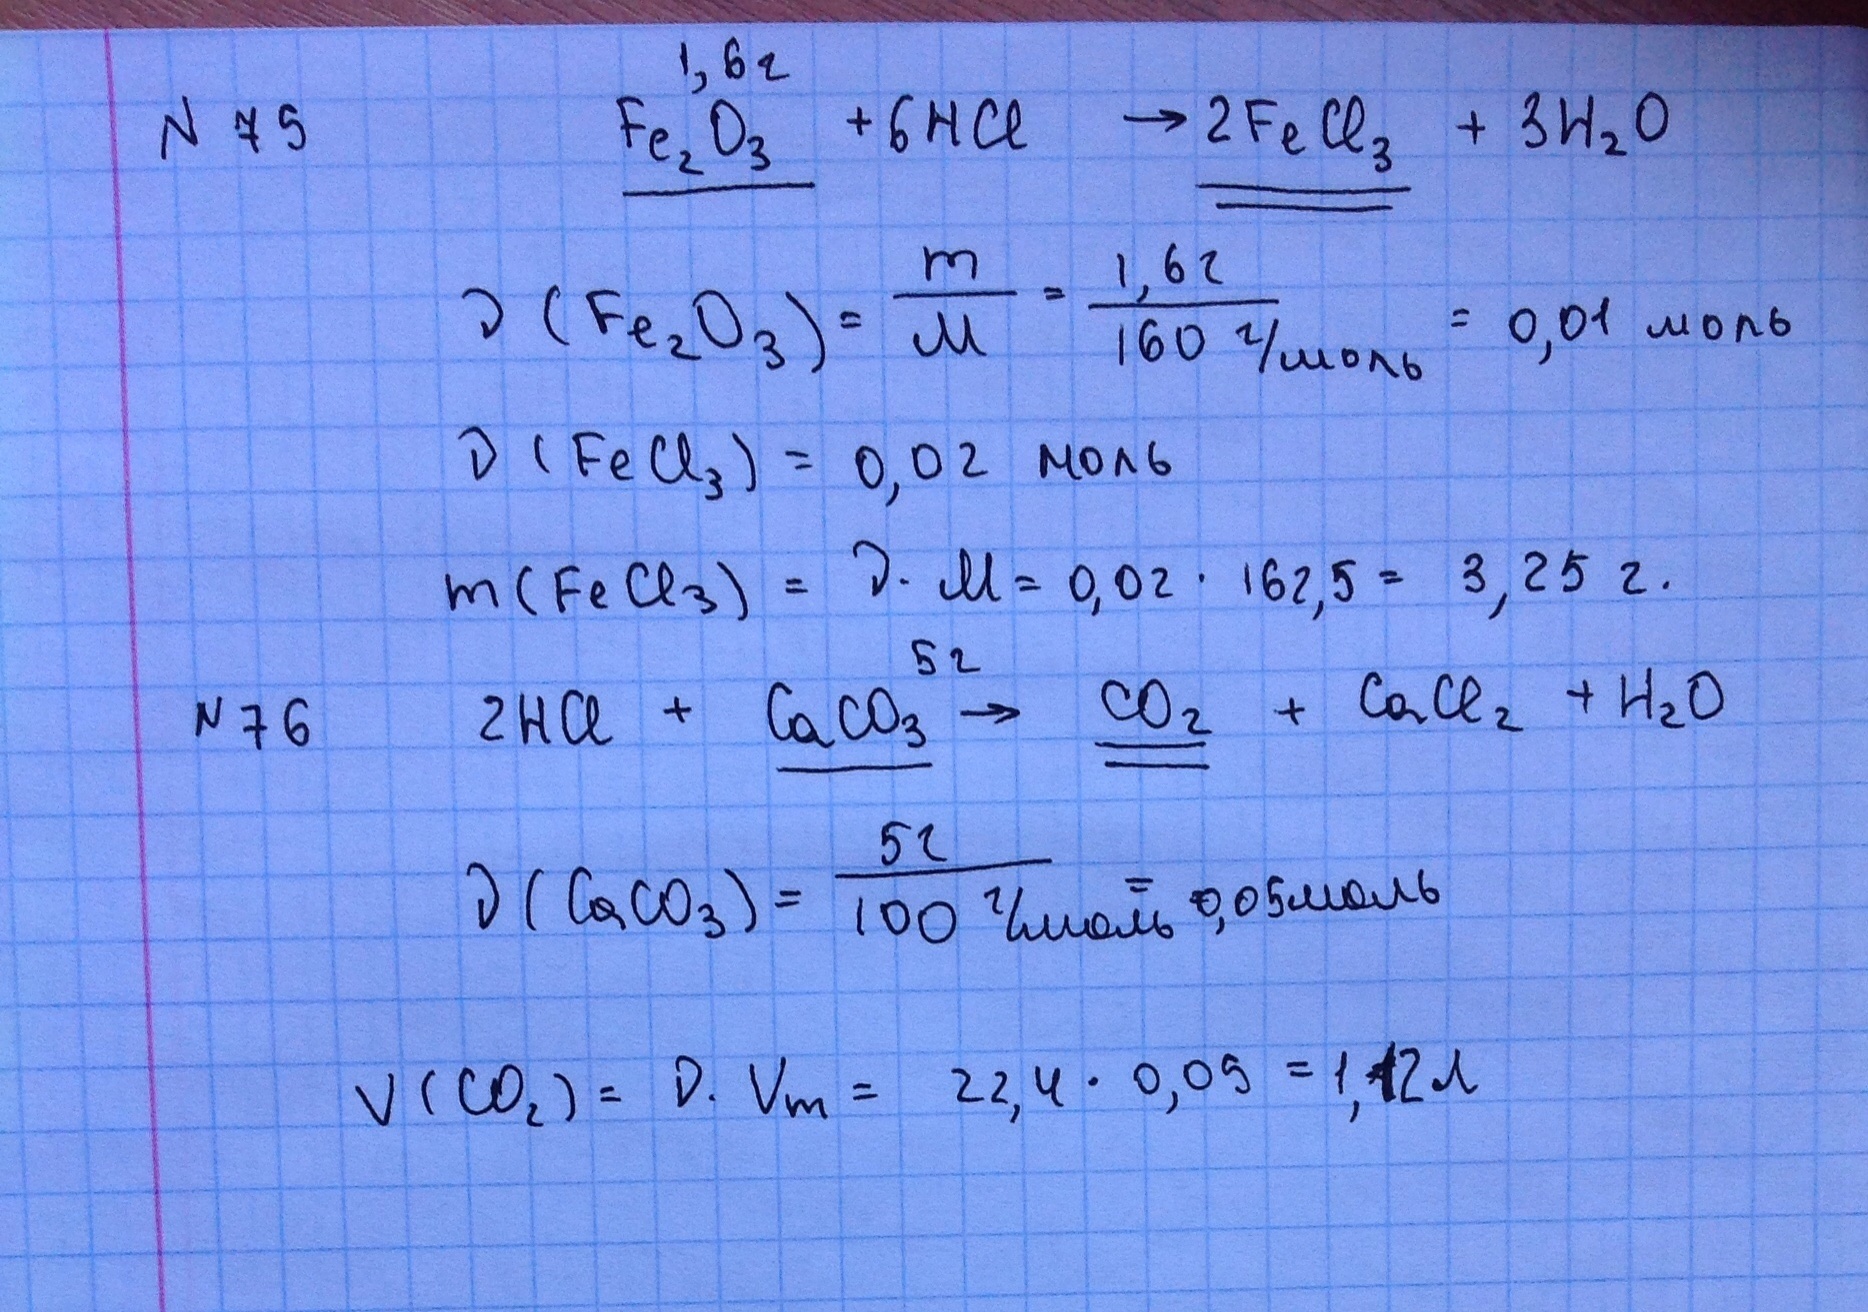 1,6г
N 75 Fe₂O₃ + 6HCl → 2FeCl₃ + 3H₂O
ν(Fe₂O₃) = m/M = 1,6г/160 г/моль = 0,01 моль
ν(FeCl₃) = 0,02 моль
m(FeCl₃) = ν · M = 0,02 · 162,5 = 3,25 г.
5г
N 76 2HCl + CaCO₃ → CO₂ + CaCl₂ + H₂O
ν(CaCO₃) = 5г/100 г/моль = 0,05моль
V(CO₂) = ν · Vm = 22,4 · 0,05 = 1,12л